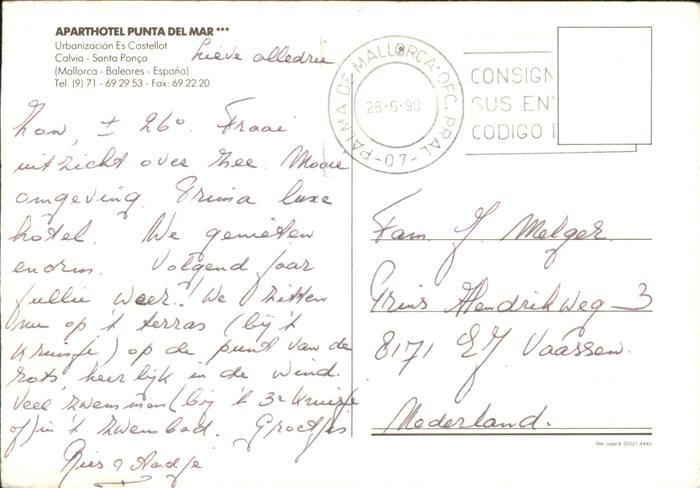 APARTHOTEL PUNTA DEL MAR ***
Urbanización Es Castellot
Calvia - Santa Ponça
(Mallorca - Baleares - España)
Tel. (9) 71 - 69 29 53 - Fax: 69 22 20
Lieve alledrie
Zon, ± 26°. Fraai
uitzicht over zee. Mooie
omgeving. Prima luxe
hotel. We genieten
enorm. Volgend jaar
jullie weer! We zitten
nu op 't terras (bij 't
kruisje) op de punt van de
rots, heerlijk in de wind.
Veel zwemmen (bij 't 3e kruisje
of in 't zwembad. Groetjes
Ries & Aadje
PALMA DE MALLORCA-OFC. PRAL
25-6-90
-07-
CONSIGN
SUS EN
CODIGO
Fam. J. Melger
Prins Hendrikweg 3
8171 EJ Vaassen.
Nederland.
Dep. Legal B. 32021-XXXII